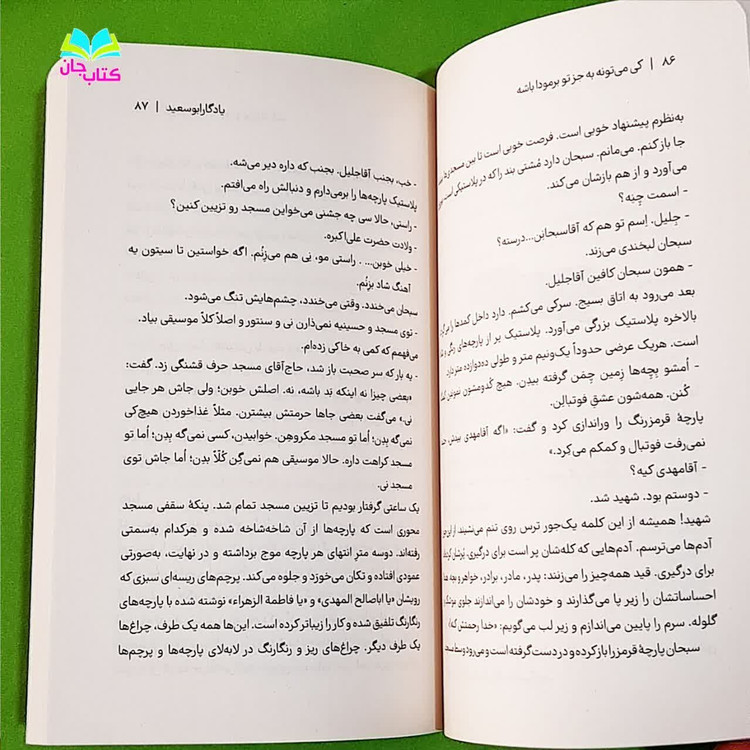 کتاب جان
۸۶ | کی می‌تونه به جز تو برمودا باشه
به‌نظرم پیشنهاد خوبی است. فرصت خوبی است تا بین مسجدی‌ها
جا باز کنم. می‌مانم. سبحان دارد مُشتی بند را که در پلاستیکی است بیرون
می‌آورد و از هم بازشان می‌کند.
- اسمت چِنِه؟
- جِلیل. اِسم تو هم که آقاسبحانِن...درسته؟
سبحان لبخندی می‌زند.
- همون سبحان کافین آقاجلیل.
بعد می‌رود به اتاق بسیج. سرکی می‌کشم. دارد داخل کمدها را می‌گردد
بالاخره پلاستیک بزرگی می‌آورد. پلاستیک پر از پارچه‌های رنگی و
است. هریک عرضی حدوداً یک‌ونیم متر و طولی ده‌دوازده متر دارد.
- اُمشو بِچه‌ها زِمین چِمَن گرفته بیدِن. هیچ کُدومشون
کُنَن. همه‌شون عشق فوتبالِن.
پارچهٔ قرمزرنگ را وراندازی کرد و گفت: «اگه آقامهدی بیدش،
نمی‌رفت فوتبال و کمکم می‌کِرد.»
- آقامهدی کیه؟
- دوستم بود. شهید شد.
شهید! همیشه از این کلمه یک‌جور ترس روی تنم می‌نشیند. از این‌جور
آدم‌ها می‌ترسم. آدم‌هایی که کله‌شان پر است برای درگیری.
برای درگیری. قید همه‌چیز را می‌زنند: پدر، مادر، برادر، خواهر و بچه
احساساتشان را زیر پا می‌گذارند و خودشان را می‌اندازند جلوی
گلوله. سرم را پایین می‌اندازم و زیر لب می‌گویم: «خدا رحمتش کنه!»
سبحان پارچهٔ قرمز را باز کرده و در دست گرفته است و می‌رود وسط
یادگار ابوسعید | ۸۷
- خب، بجنب آقاجلیل. بجنب که داره دیر می‌شه.
پلاستیک پارچه‌ها را برمی‌دارم و دنبالش راه می‌افتم.
- راستی، حالا سی چه جشنی می‌خواین مسجد رو تزیین کنین؟
- ولادت حضرت علی‌اکبره.
- خیلی خوبن... . راستی مو، نِی هم می‌زَنُم. اگه خواستین تا سیتون یه
آهنگ شاد بزنُم.
سبحان می‌خندد. وقتی می‌خندد، چشم‌هایش تنگ می‌شود.
- توی مسجد و حسینیه نمی‌ذارن نی و سنتور و اصلاً کلاً موسیقی بیاد.
می‌فهمم که کمی به خاکی زده‌ام.
- یه بار که سر صحبت باز شد، حاج‌آقای مسجد حرف قشنگی زد. گفت:
«بعضی چیزا نه اینکه بَد باشه، نه. اصلش خوبن؛ ولی جاش هر جایی
نی.» می‌گفت بعضی جاها حرمتش بیشترن. مثلاً غذاخوردن هیچ‌کی
نمی‌گه بِدن؛ اُما تو مسجد مکروهِن. خوابیدن، کسی نمی‌گه بِدن؛ اُما تو
مسجد کراهت داره. حالا موسیقی هم نمی‌گِن کُلّاً بِدن؛ اُما جاش توی
مسجد نی.
یک ساعتی گرفتار بودیم تا تزیین مسجد تمام شد. پنکهٔ سقفی مسجد
محوری است که پارچه‌ها از آن شاخه‌شاخه شده و هرکدام به‌سمتی
رفته‌اند. دوسه متر انتهای هر پارچه موج برداشته و در نهایت، به‌صورتی
عمودی افتاده و تکان می‌خورد و جلوه می‌کند. پرچم‌های ریسه‌ای سبزی که
رویشان «یا اباصالح المهدی» و «یا فاطمة الزهراء» نوشته شده با پارچه‌های
رنگارنگ تلفیق شده و کار را زیباتر کرده است. این‌ها همه یک طرف، چراغ‌ها
یک طرف دیگر. چراغ‌های ریز و رنگارنگ در لابه‌لای پارچه‌ها و پرچم‌ها